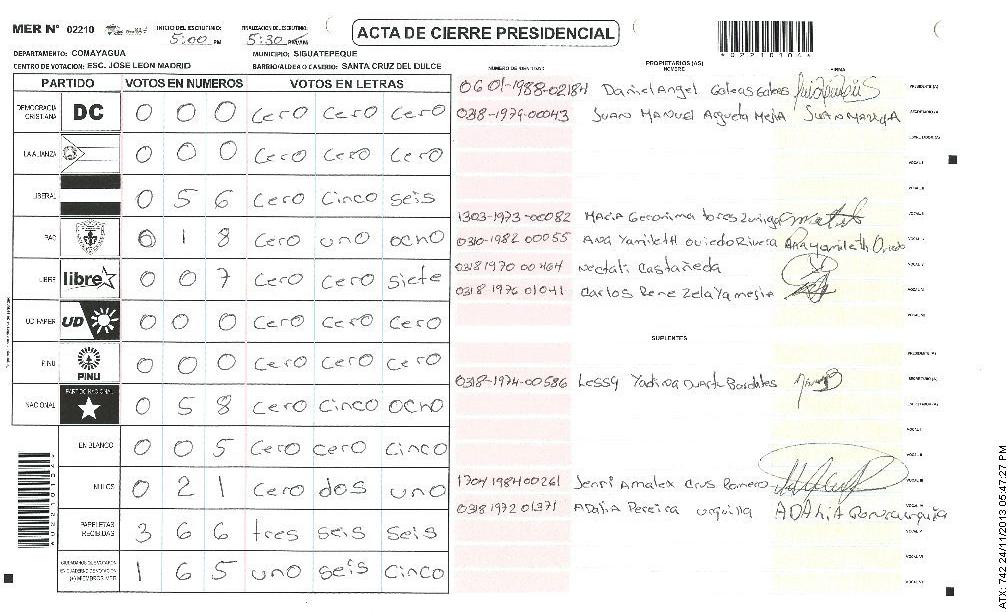 MER N° 02210
INICIO DEL ESCRUTINIO: 5:00 PM
FINALIZACION DEL ESCRUTINIO: 5:30 PM/AM
ACTA DE CIERRE PRESIDENCIAL
DEPARTAMENTO: COMAYAGUA
MUNICIPIO: SIGUATEPEQUE
CENTRO DE VOTACION: ESC. JOSE LEON MADRID
BARRIO/ALDEA O CASERIO: SANTA CRUZ DEL DULCE
PARTIDO VOTOS EN NUMEROS VOTOS EN LETRAS
DEMOCRACIA CRISTIANA DC 0 0 0 Cero Cero Cero
LA ALIANZA 0 0 0 Cero Cero Cero
LIBERAL 0 5 6 Cero Cinco seis
PAC 0 1 8 Cero uno ocho
LIBRE libre 0 0 7 Cero Cero siete
UD FAPER UD 0 0 0 Cero Cero Cero
PINU PINU 0 0 0 Cero Cero Cero
NACIONAL PARTIDO NACIONAL 0 5 8 Cero Cinco ocho
EN BLANCO 0 0 5 Cero cero cinco
NULOS 0 2 1 Cero dos uno
PAPELETAS RECIBIDAS 3 6 6 tres seis seis
1 6 5 uno seis cinco
NUMERO DE IDENTIDAD
PROPIETARIOS (AS)
NOMBRE
FIRMA
0601-1988-02184 Daniel Angel Galeas Galeas PRESIDENTE (A)
0318-1979-00043 Juan Manuel Argueta Mejia SECRETARIO (A)
1303-1973-00082 Maria Geronima torres zuniga
0310-1982 00055 Ana Yamileth oviedo Rivera
0318 1970 00464 Nectali Castañeda
0318 1976 01041 Carlos Rene Zelaya mejia
SUPLENTES
PRESIDENTE (A)
0318-1974-00586 Lessy SECRETARIO (A)
1704 1984 00261 Jenri Amalex Crus Romero
0318 1972 01371 ADaliA Pereira urquilla
ATX: 742 24/11/2013 05:47:27 PM